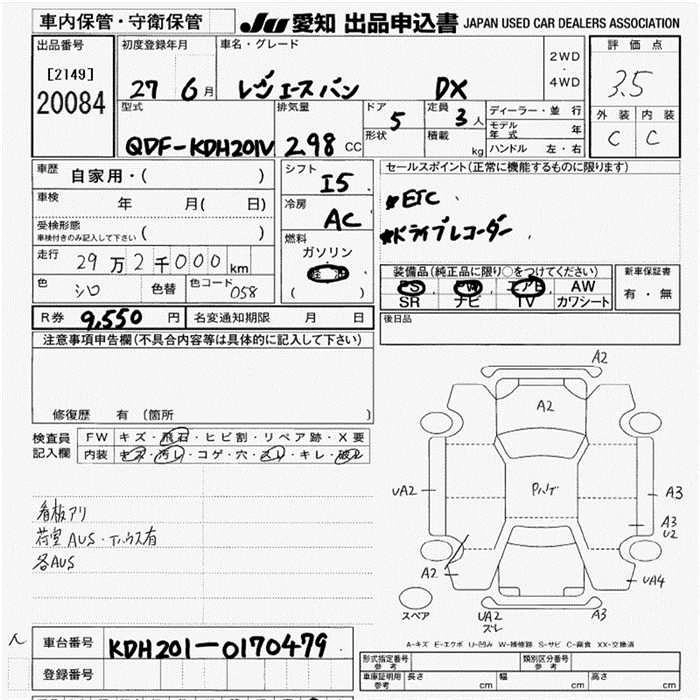 車内保管・守衛保管
JU 愛知 出品申込書 JAPAN USED CAR DEALERS ASSOCIATION
出品番号 初度登録年月 車名・グレード 2WD・4WD 評価点
[2149] 20084 27 6月 レジエースバン DX 3.5
型式 排気量 ドア 5 定員 3人 ディーラー・並行 外装 内装
QDF-KDH201V 2.98 CC 形状 積載 kg モデル年式 年 C C
ハンドル 左・右
車歴 自家用・( ) シフト I5 セールスポイント(正常に機能するものに限ります)
車検 年 月( 日) 冷房 AC ★ETC
受検形態 ( ) ★ドライブレコーダー
車検付きのみ記入して下さい
走行 29万2千000km 燃料 ガソリン 軽油 ( )
色 シロ 色替 色コード 058
装備品(純正品に限り○をつけてください) 新車保証書
PS PW エアB AW 有・無
SR ナビ TV カワシート
R券 9,550円 名変通知期限 月 日 後日品
注意事項申告欄(不具合内容等は具体的に記入して下さい)
修復歴 有 (箇所 )
検査員 FW キズ・飛石・ヒビ割・リペア跡・X要
記入欄 内装 キズ・汚レ・コゲ・穴・スレ・キレ・破レ
看板アリ
荷室AUS・
各AUS
A2
A2
UA2 A3
A3
U2
A2 UA4
スペア UA2 A3
ズレ
A-キズ E-エクボ U-凹み W-補修跡 S-サビ C-腐食 XX-交換済
車台番号 KDH201-0170479
登録番号
形式指定番号 参考 類別区分番号 参考
車庫証明用 参考 長さ cm 幅 cm 高さ cm